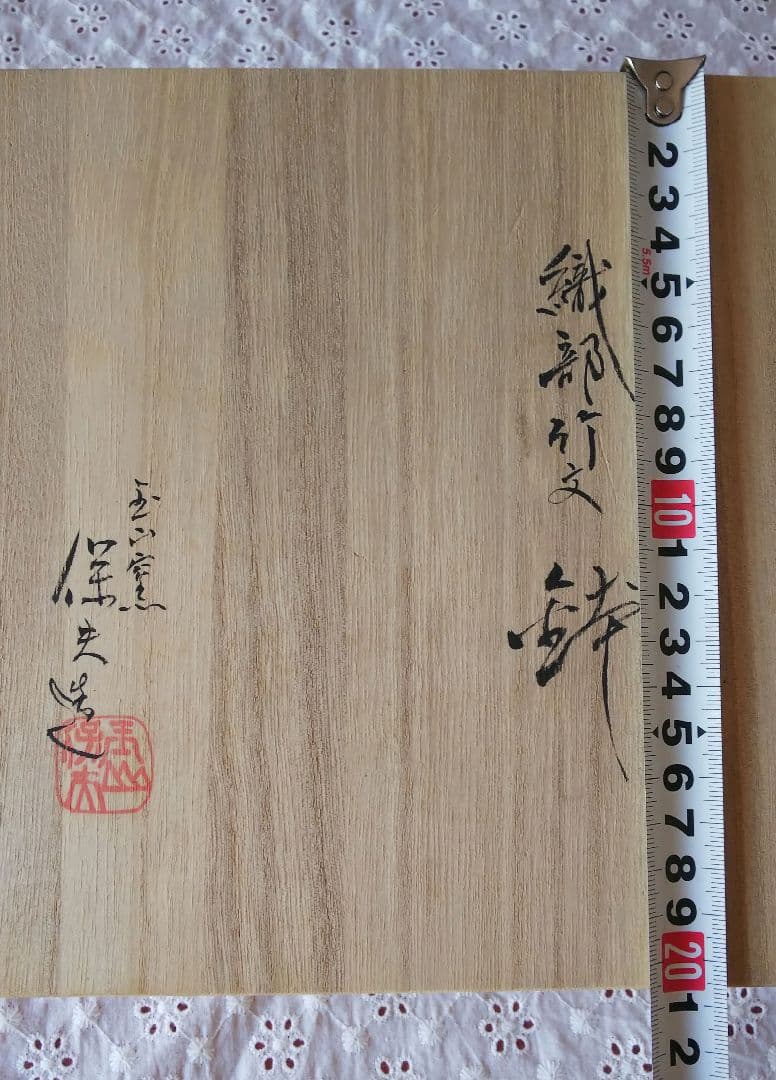 織部竹文 鉢
玉山窯
保夫造
玉山
保夫
5.5m
2
3
4
5
6
7
8
9
10
1
2
3
4
5
6
7
8
9
20
1
2